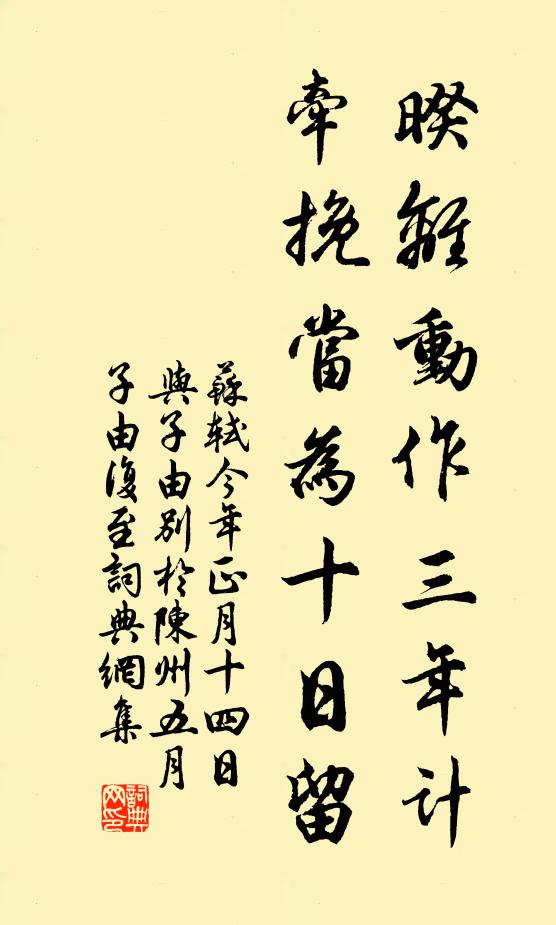 暌離動作三年計
牽挽當為十日留
蘇軾今年正月十四日
與子由別於陳州五月
子由復至詞典網集
詞典
网印